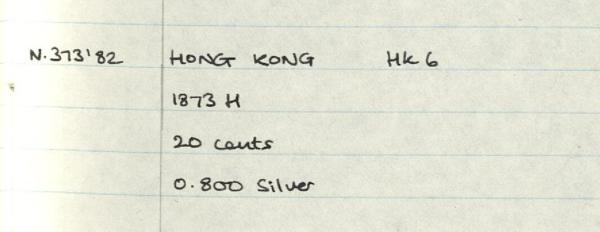 N.373'82 HONG KONG HK 6
1873 H
20 cents
0.800 Silver